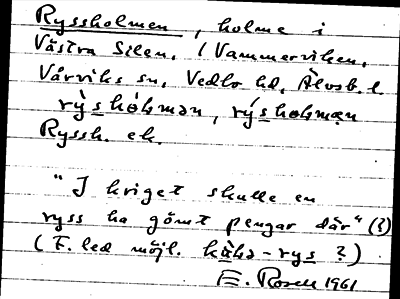 Ryssholmen, holme i
Västra Silen, (Vammerviken,
Vårviks sn, Vedbo hd, Älvsb. l.
rỳshòlmən, rýshòlmən
Ryssh. ek.
"I kriget skulle en
ryss ha gömt pengar där" (?)
(F. led möjl. - rys ?)
E. Rosell 1961